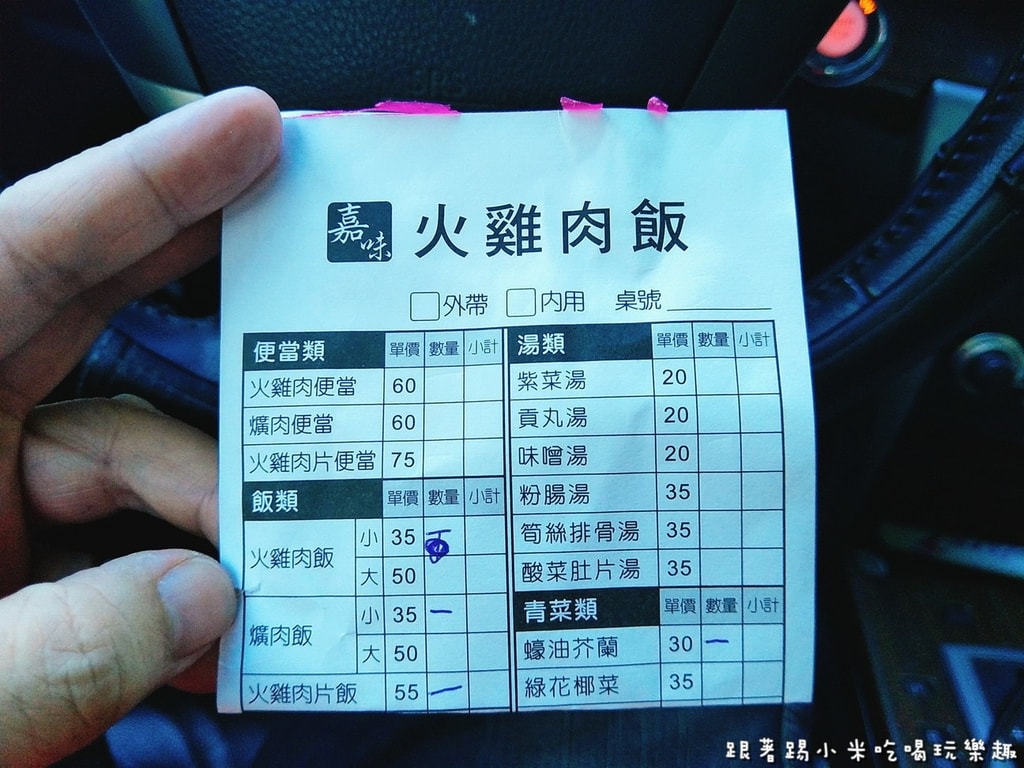 嘉味 火雞肉飯
外帶 內用 桌號
便當類 單價 數量 小計
火雞肉便當 60
爌肉便當 60
火雞肉片便當 75
飯類 單價 數量 小計
火雞肉飯 小 35
大 50
爌肉飯 小 35 一
大 50
火雞肉片飯 55 一
湯類 單價 數量 小計
紫菜湯 20
貢丸湯 20
味噌湯 20
粉腸湯 35
筍絲排骨湯 35
酸菜肚片湯 35
青菜類 單價 數量 小計
蠔油芥蘭 30 一
綠花椰菜 35
跟著踢小米吃喝玩樂趣